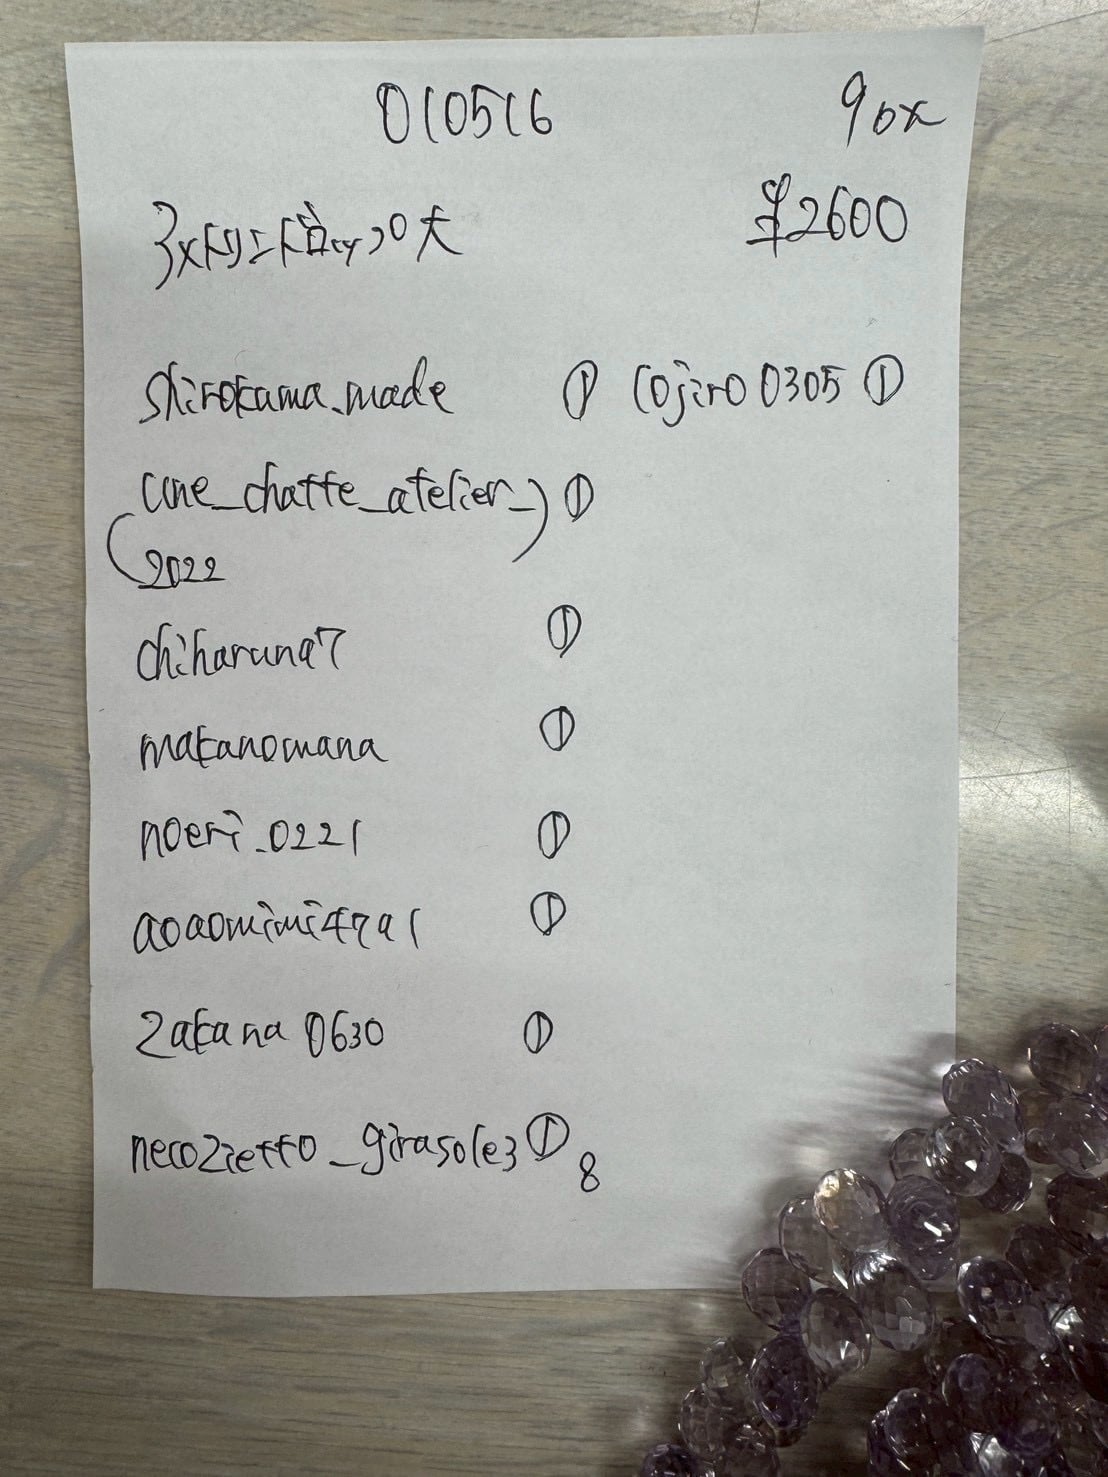 010516 90x
¥2600
shirokuma_made ① cojiro0305 ①
une_chatte_atelier_ ①
2022
chiharuna7 ①
makanomana ①
noeri_0221 ①
aoaomimi4791 ①
zakana0630 ①
necozietto_girasole3 ①
8